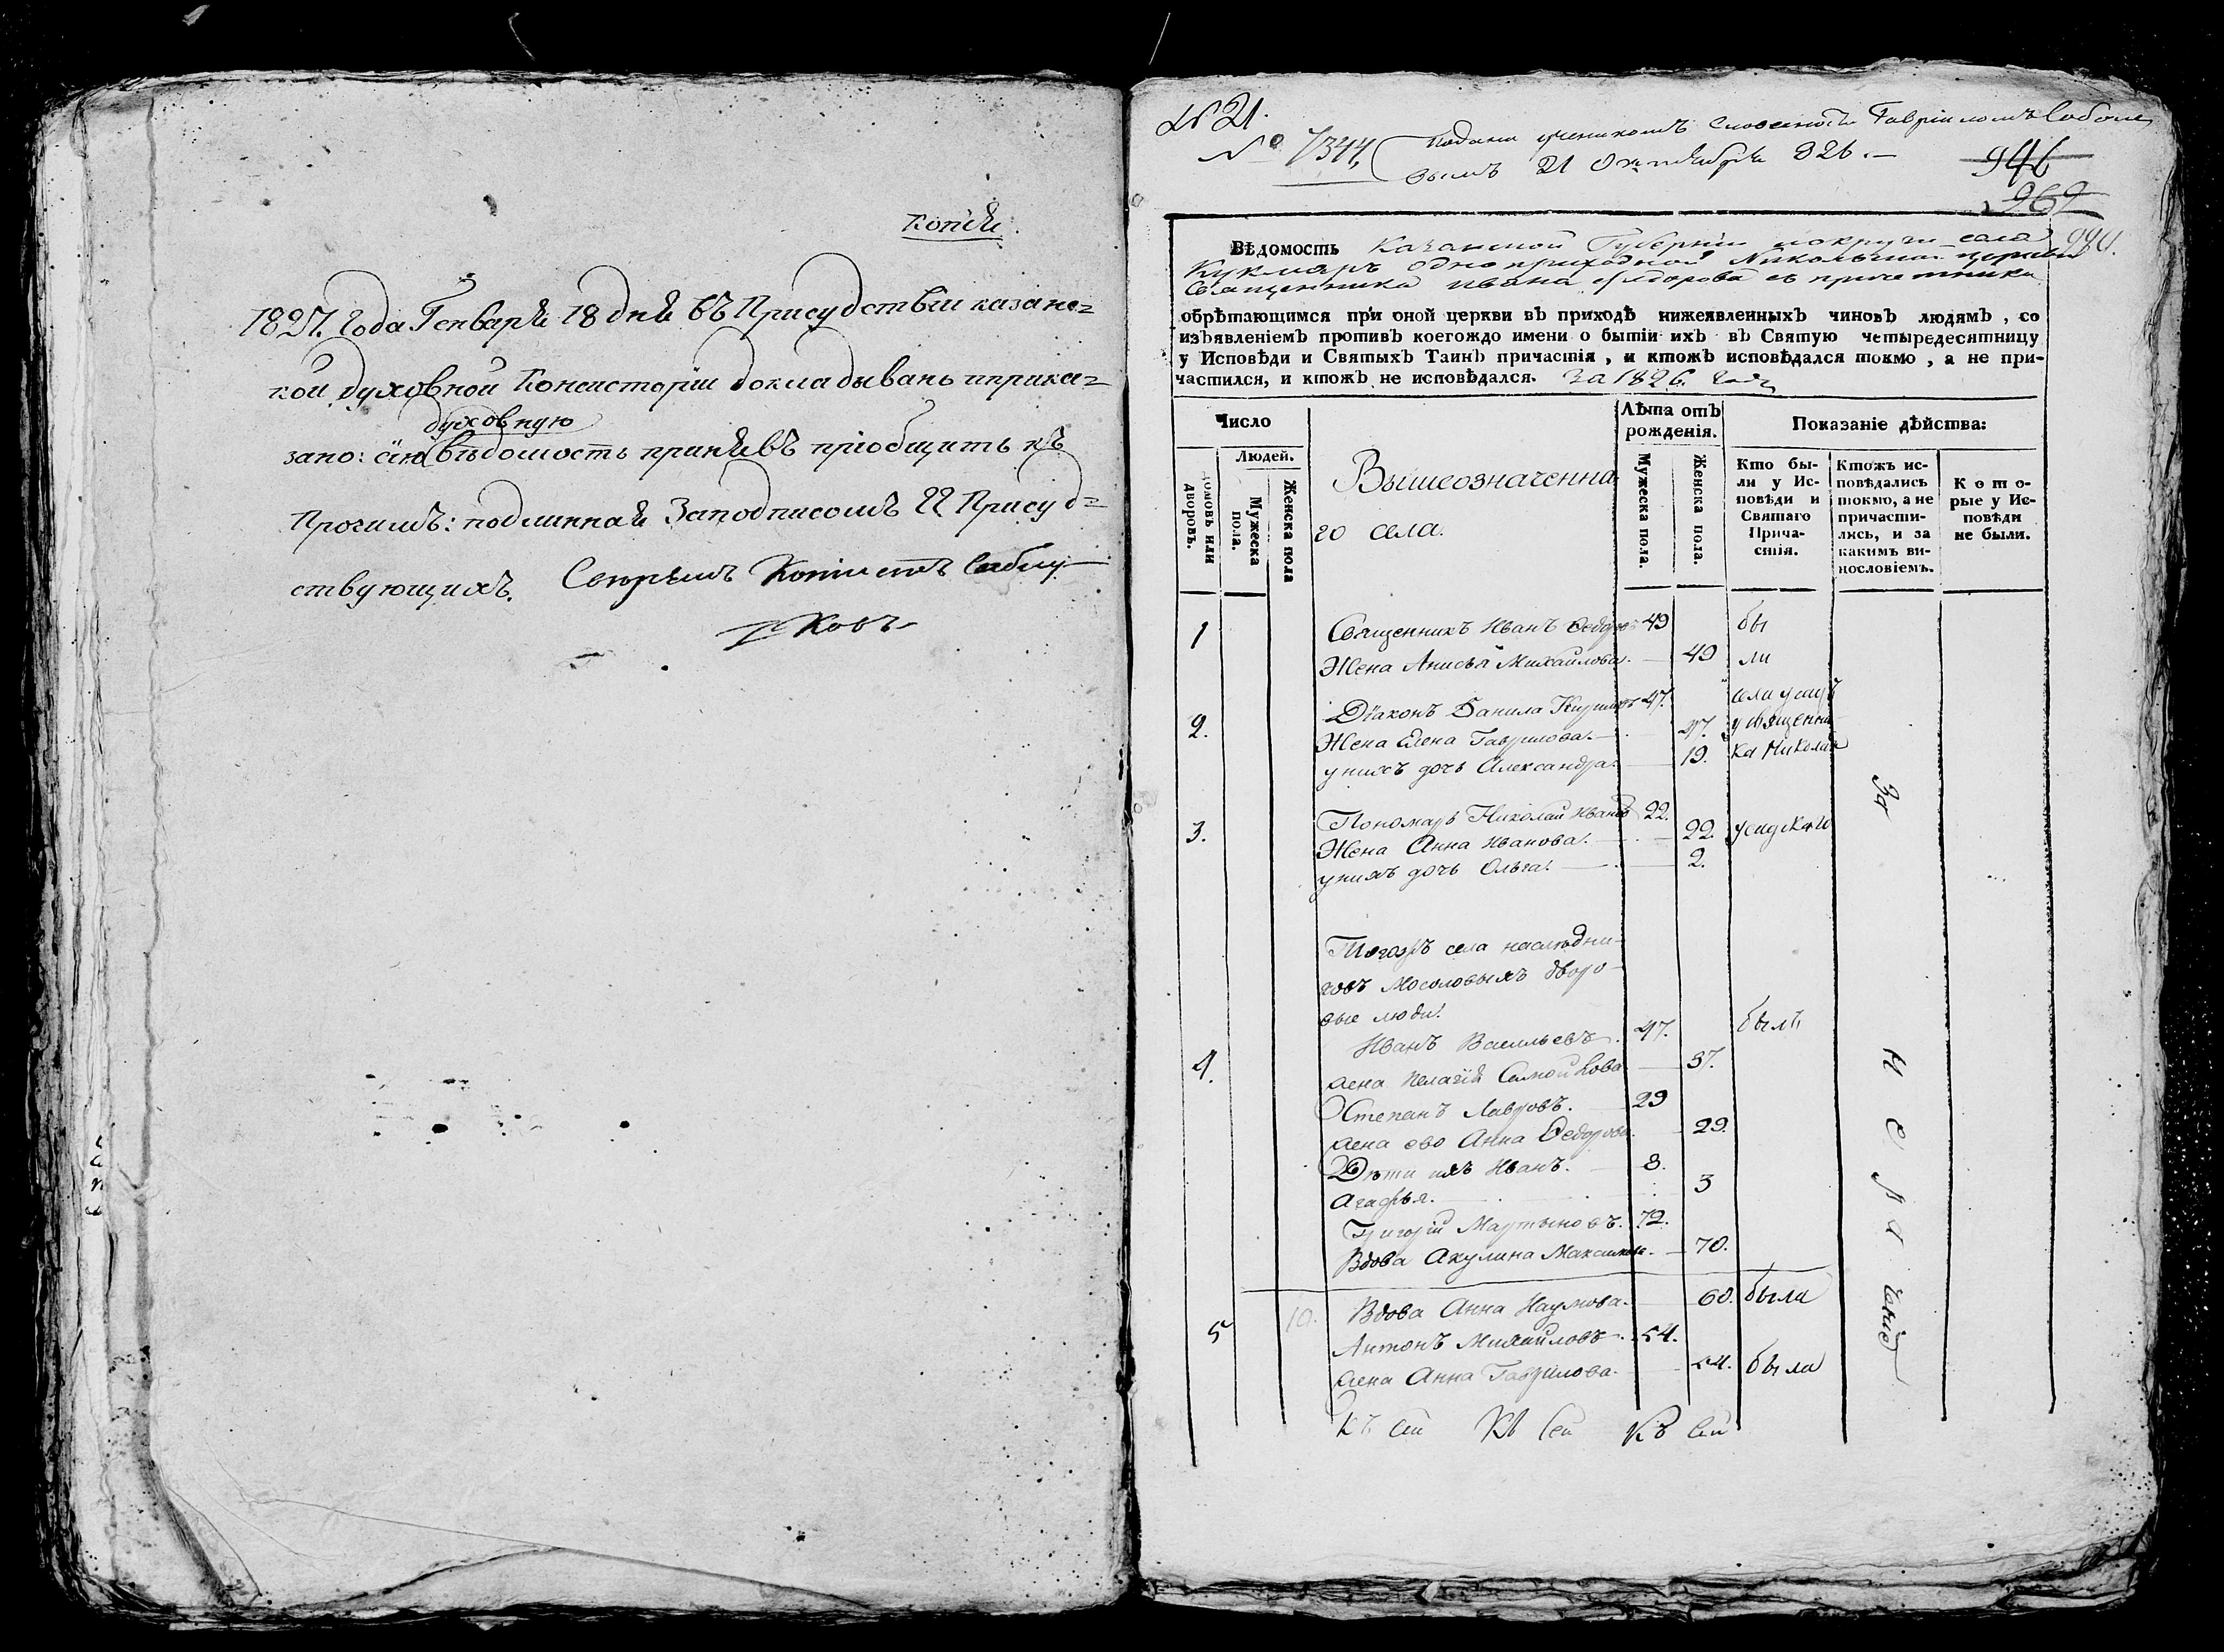 Копія
1827. Года Генваря 18 дня въ Присудствіи казанс=
кой духовной Консисторіи докладывань и прика=
духовную
зано: сію вѣдомость принявъ пріобщить къ
Прочимъ: подлинная За подписомъ 22 Присуд=
ствующихъ. Копіистъ
ковъ
№ 21.
№ 7344 Подана ученикомъ словесности Гавріиломъ Соболе
вымъ 21 октября 826.
946
262
Вѣдомость Казанской Губерніи и округи села 990.
Кукморъ одноприходной Никольской церкви
Священника Ивана Федорова съ причетники
обрѣтающимся при оной церкви въ приходѣ нижеявленныхъ чиновъ людямъ, со
изъявленіемъ противъ коегождо имени о бытіи ихъ въ Святую четыредесятницу
у Исповѣди и Святыхъ Таинъ причастія, и ктожъ исповѣдался токмо, а не при-
частился, и ктожъ не исповѣдался. За 1826. годъ
Число
Людей.
домовъ или дворовъ.
Мужеска пола.
Женска пола
Вышеозначенна
го села.
Лѣта отъ рожденія.
Мужеска пола.
Женска пола.
Показаніе дѣйства:
Кто бы-
ли у Ис-
повѣди и
Святаго
Прича-
стія.
Ктожъ ис-
повѣдались
токмо, а не
причасти-
лись, и за
какимъ ви-
нословіемъ.
Кото-
рые у Ис-
повѣди
не были.
1 Священникъ Иванъ Федоровъ 49 бы
Жена Анисья Михайлова. 49 ли
2. Діаконъ Данила 47.
Жена Елена Гаврилова. 47. у священни
у нихъ дочь Александра. 19. ка Николая
3. Пономарь Николай Ивановъ 22.
Жена Анна Иванова. 22.
у нихъ дочь Ольга. 2.
Тогожъ села наслѣдни-
ковъ Мосоловыхъ дворо-
вые люди.
Иванъ Васильевъ. 47. былъ
4. жена Пелагія 37.
Степанъ Лавровъ. 29
жена ево Анна Федорова. 29.
Дѣти ихъ Иванъ. 8.
Агафья. 3
Григорій Мартыновъ. 72.
Вдова Акулина Максимова. 70.
10. Вдова Анна Наумова. 60. была
5 Антонъ Михайловъ. 54.
жена Анна Гаврилова. 54. была
Къ сей Къ сей Къ сей